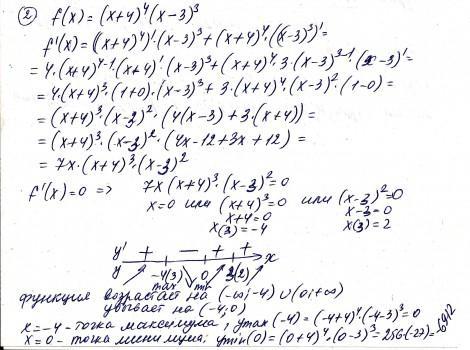 ② f(x) = (x+4)⁴(x−3)³
f'(x) = ((x+4)⁴)'·(x−3)³ + (x+4)⁴·((x−3)³)' =
= 4·(x+4)⁴⁻¹·(x+4)'·(x−3)³ + (x+4)⁴·3·(x−3)³⁻¹·(x−3)' =
= 4·(x+4)³·(1+0)·(x−3)³ + 3·(x+4)⁴·(x−3)²·(1−0) =
= (x+4)³·(x−3)²·(4(x−3) + 3·(x+4)) =
= (x+4)³·(x−3)²·(4x−12+3x+12) =
= 7x·(x+4)³·(x−3)²
f'(x)=0 => 7x(x+4)³·(x−3)²=0
x=0 или (x+4)³=0 или (x−3)²=0
x+4=0 x−3=0
x(3)=−4 x(3)=2
y' + − + +
y −4(3) 0 3(2) x
max min
Функция возрастает на (−∞;−4) ∪ (0;+∞)
убывает на (−4;0)
x=−4 − точка максимума, ymax(−4)=(−4+4)⁴·(−4−3)³=0
x=0 − точка минимума; ymin(0)=(0+4)⁴·(0−3)³=256·(−27)=−6912